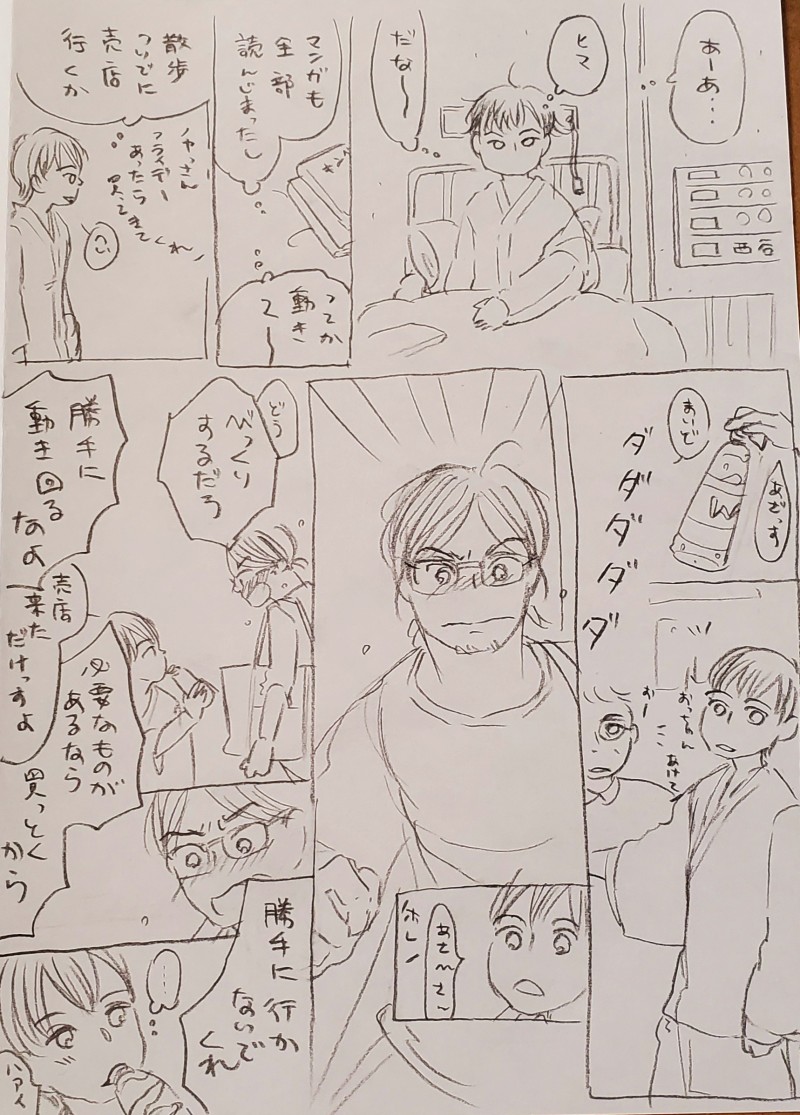 あーあ…
西谷
ヒマ
だな～
マンガも
全部
読んじまったし
ってか
動き
てー
散歩
ついでに
売店
行くか
ノヤっさん
フライデー
あったら
買ってきてくれ
へい
まいど
あざっす
ダダダダダ
おっちゃん
ここ
あけて
おー
あさひさ～
ホレ
どう
びっくり
するだろ
勝手に
動き回る
なよ
売店
来た
だけっすよ
必要なものが
あるなら
買っとく
から
勝手に行か
ないで
くれ
……
ハアイ